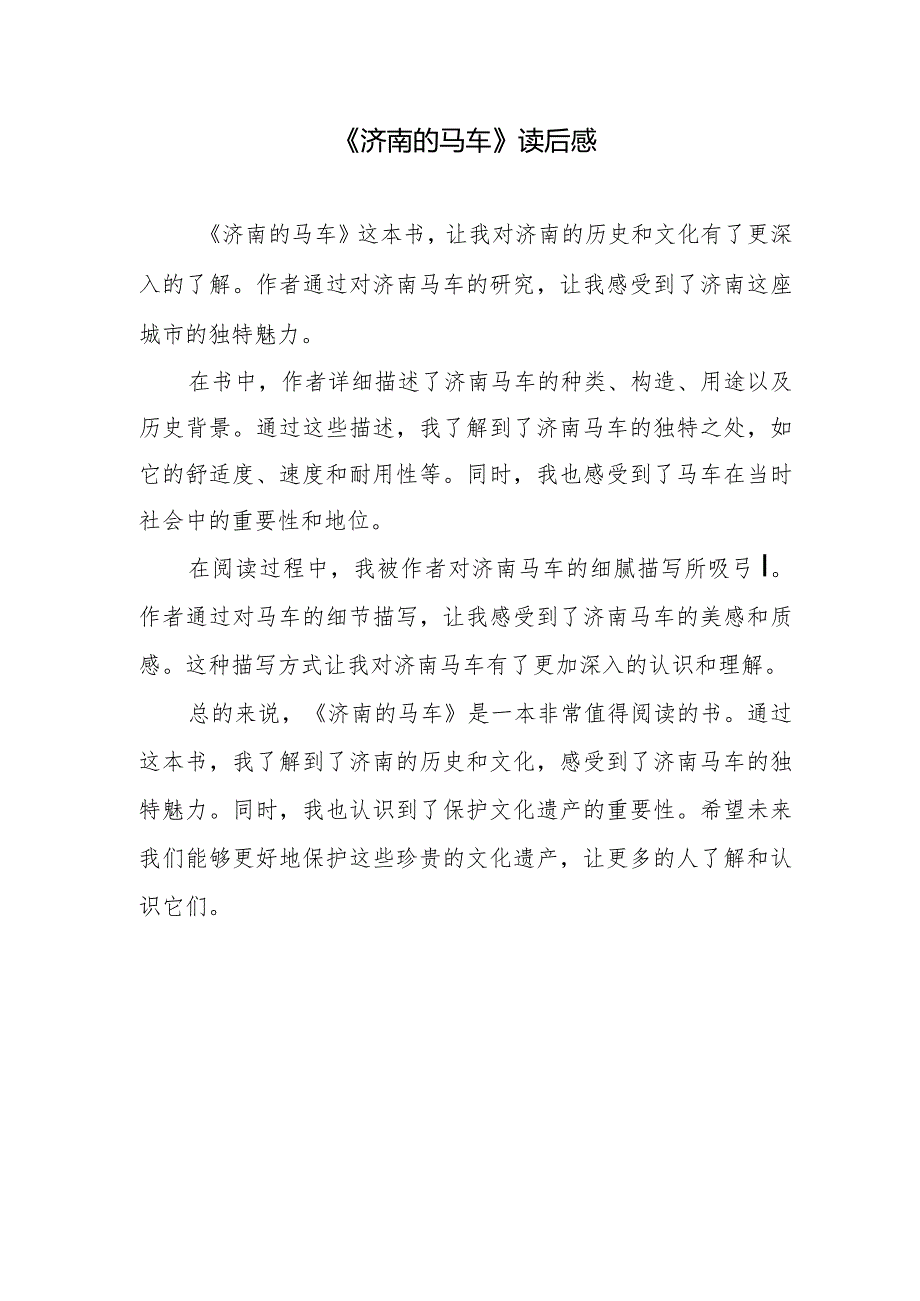 《济南的马车》读后感
《济南的马车》这本书，让我对济南的历史和文化有了更深
入的了解。作者通过对济南马车的研究，让我感受到了济南这座
城市的独特魅力。
在书中，作者详细描述了济南马车的种类、构造、用途以及
历史背景。通过这些描述，我了解到了济南马车的独特之处，如
它的舒适度、速度和耐用性等。同时，我也感受到了马车在当时
社会中的重要性和地位。
在阅读过程中，我被作者对济南马车的细腻描写所吸弓I。
作者通过对马车的细节描写，让我感受到了济南马车的美感和质
感。这种描写方式让我对济南马车有了更加深入的认识和理解。
总的来说，《济南的马车》是一本非常值得阅读的书。通过
这本书，我了解到了济南的历史和文化，感受到了济南马车的独
特魅力。同时，我也认识到了保护文化遗产的重要性。希望未来
我们能够更好地保护这些珍贵的文化遗产，让更多的人了解和认
识它们。